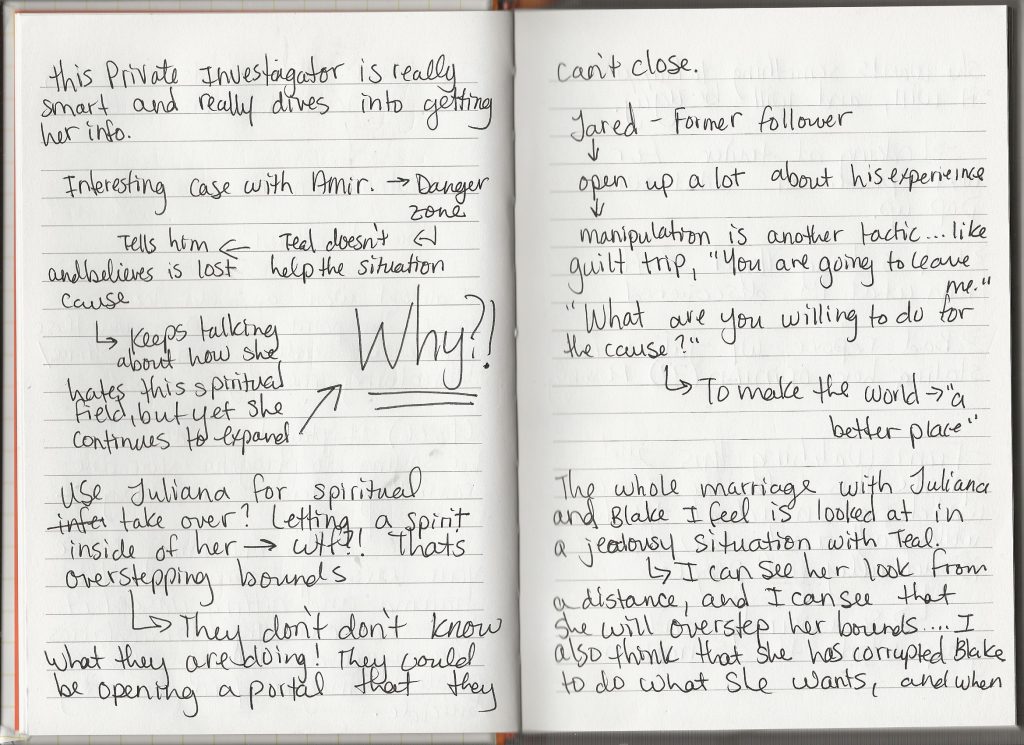 this Private Investagator is really
smart and really dives into getting
her info.
Interesting case with Amir. → Danger
zone
Tells him ← Teal doesn't ↵
and believes is lost help the situation
cause
↳ Keeps talking
about how she
hates this spiritual
field, but yet she
continues to expand
Why?!
Use Juliana for spiritual
infer take over? Letting, a spirit
inside of her → wtf?! Thats
overstepping bounds
↳ They don't don't know
what they are doing! They could
be opening a portal that they
can't close.
Jared - Former follower
↓
open up a lot about his experieince
↓
manipulation is another tactic... like
guilt trip, "You are going to leave
me."
"What are you willing to do for
the cause?"
↳ To make the world → "a
better place"
The whole marriage with Juliana
and Blake I feel is looked at in
a jealousy situation with Teal.
↳ I can see her look from
a distance, and I can see that
she will overstep her bounds.... I
also think that she has corrupted Blake
to do what she wants, and when